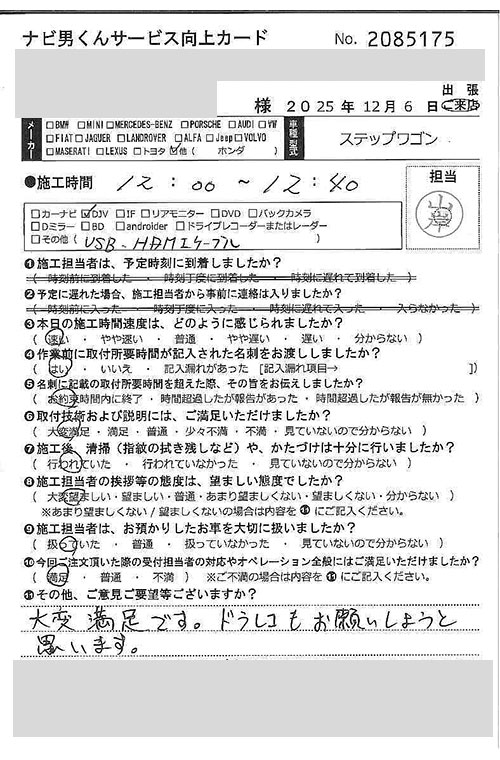 ナビ男くんサービス向上カード No. 2085175
様 2025年12月6日 出張・ご来店
メーカー □BMW □MINI □MERCEDES-BENZ □PORSCHE □AUDI □VW
□FIAT □JAQUER □LANDROVER □ALFA □Jeep □VOLVO
□MASERATI □LEXUS □トヨタ ☑他（ ホンダ ）
車種型式 ステップワゴン
●施工時間 12:00 ~ 12:40
担当
山岸
□カーナビ ☑DJV □IF □リアモニター □DVD □バックカメラ
□Dミラー □BD □androider □ドライブレコーダーまたはレーダー
□その他（ USB・HDMIケーブル ）
❶施工担当者は、予定時刻に到着しましたか？
（ 時刻前に到着した ・ 時刻丁度に到着した ・ 時刻に遅れて到着した ）
❷予定に遅れた場合、施工担当者から事前に連絡は入りましたか？
（ 時刻前に入った ・ 時刻丁度に入った ・ 時刻に遅れて入った ・ 入らなかった ）
❸本日の施工時間速度は、どのように感じられましたか？
（ 速い ・ やや速い ・ 普通 ・ やや遅い ・ 遅い ・ 分からない ）
❹作業前に取付所要時間が記入された名刺をお渡ししましたか？
（ はい ・ いいえ ・ 記入漏れがあった [記入漏れ項目→ ]）
❺名刺に記載の取付所要時間を超えた際、その旨をお伝えしましたか？
（ お約束時間内に終了 ・ 時間超過したが報告があった ・ 時間超過したが報告が無かった ）
❻取付技術および説明には、ご満足いただけましたか？
（ 大変満足 ・ 満足 ・ 普通 ・ 少々不満 ・ 不満 ・ 見ていないので分からない ）
❼施工後、清掃（指紋の拭き残しなど）や、かたづけは十分に行いましたか？
（ 行われていた ・ 行われていなかった ・ 見ていないので分からない ）
❽施工担当者の挨拶等の態度は、望ましい態度でしたか？
（ 大変望ましい ・ 望ましい ・ 普通 ・ あまり望ましくない ・ 望ましくない ・ 分からない ）
※あまり望ましくない / 望ましくないの場合は内容を⓫にご記入ください。
❾施工担当者は、お預かりしたお車を大切に扱いましたか？
（ 扱っていた ・ 普通 ・ 扱っていなかった ・ 見ていないので分からない ）
❿今回ご注文頂いた際の受付担当者の対応やオペレーション全般にはご満足いただけましたか？
（ 満足 ・ 普通 ・ 不満 ） ※ご不満の場合は内容を⓫にご記入ください。
⓫その他、ご意見ご要望等ございますか？
大変満足です。ドラレコもお願いしようと
思います。